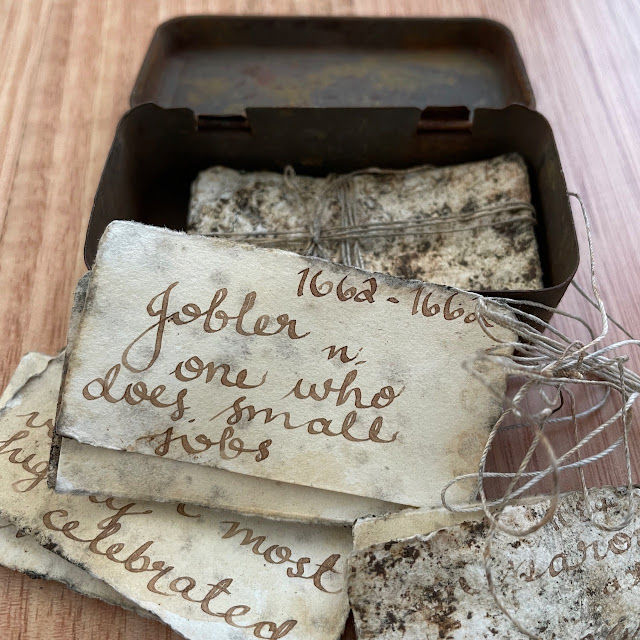 1662 - 1662
Jobler n,
one who
does small
jobs
most
celebrated